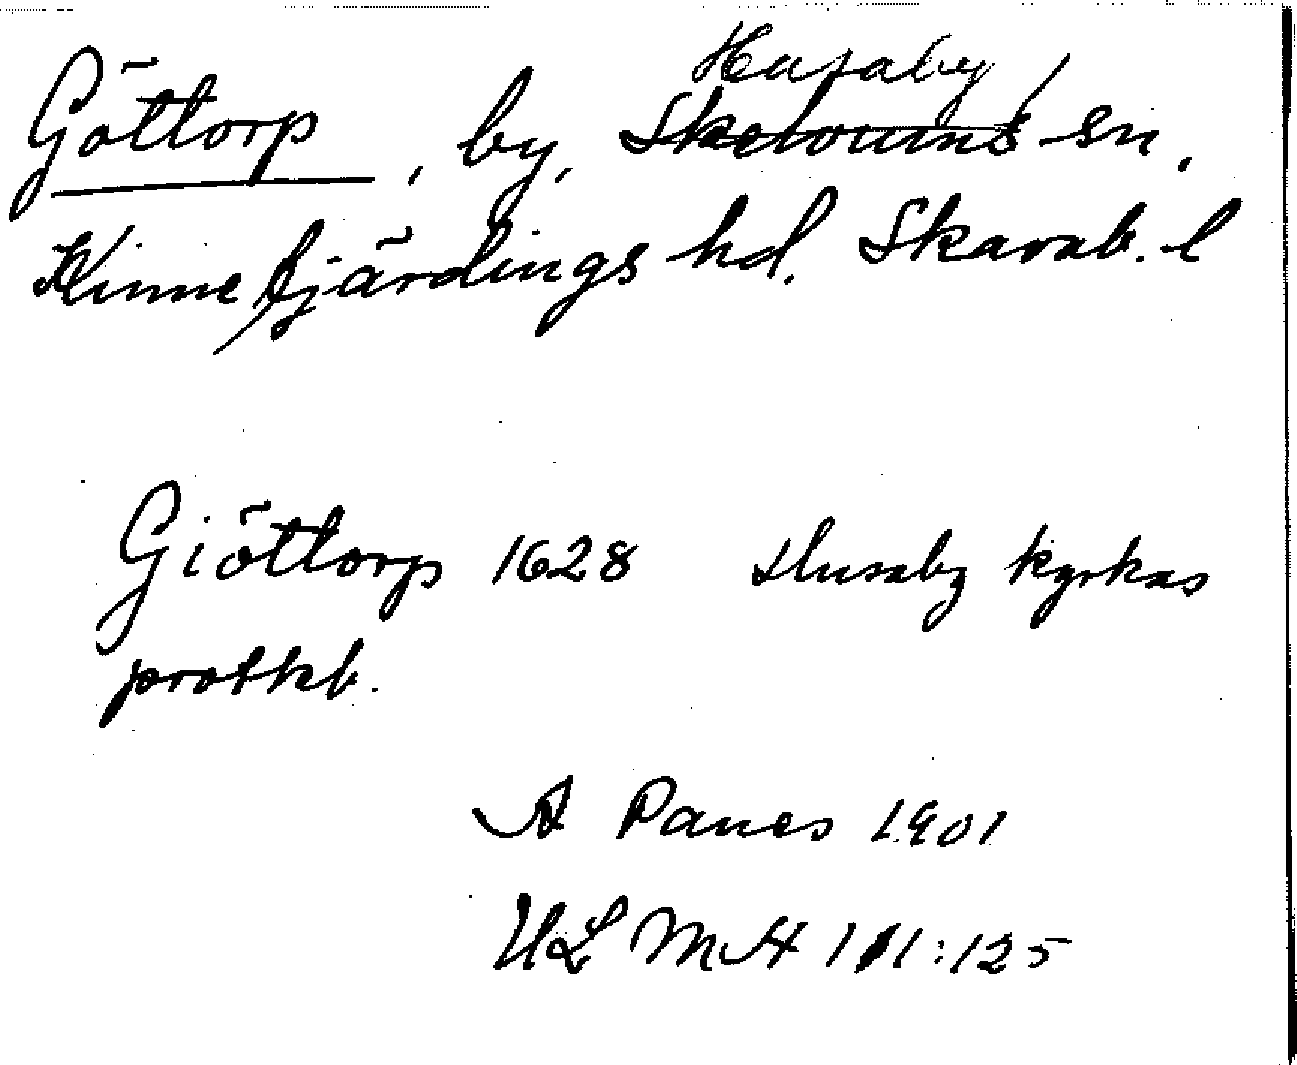 Husaby /
Göttorp, by, Skelvums sn.
Kinnefjärdings hd. Skarab. l
Giöttorp 1628 Husaby kyrkas
protkb.
A Panes 1901
ULMA 111:125